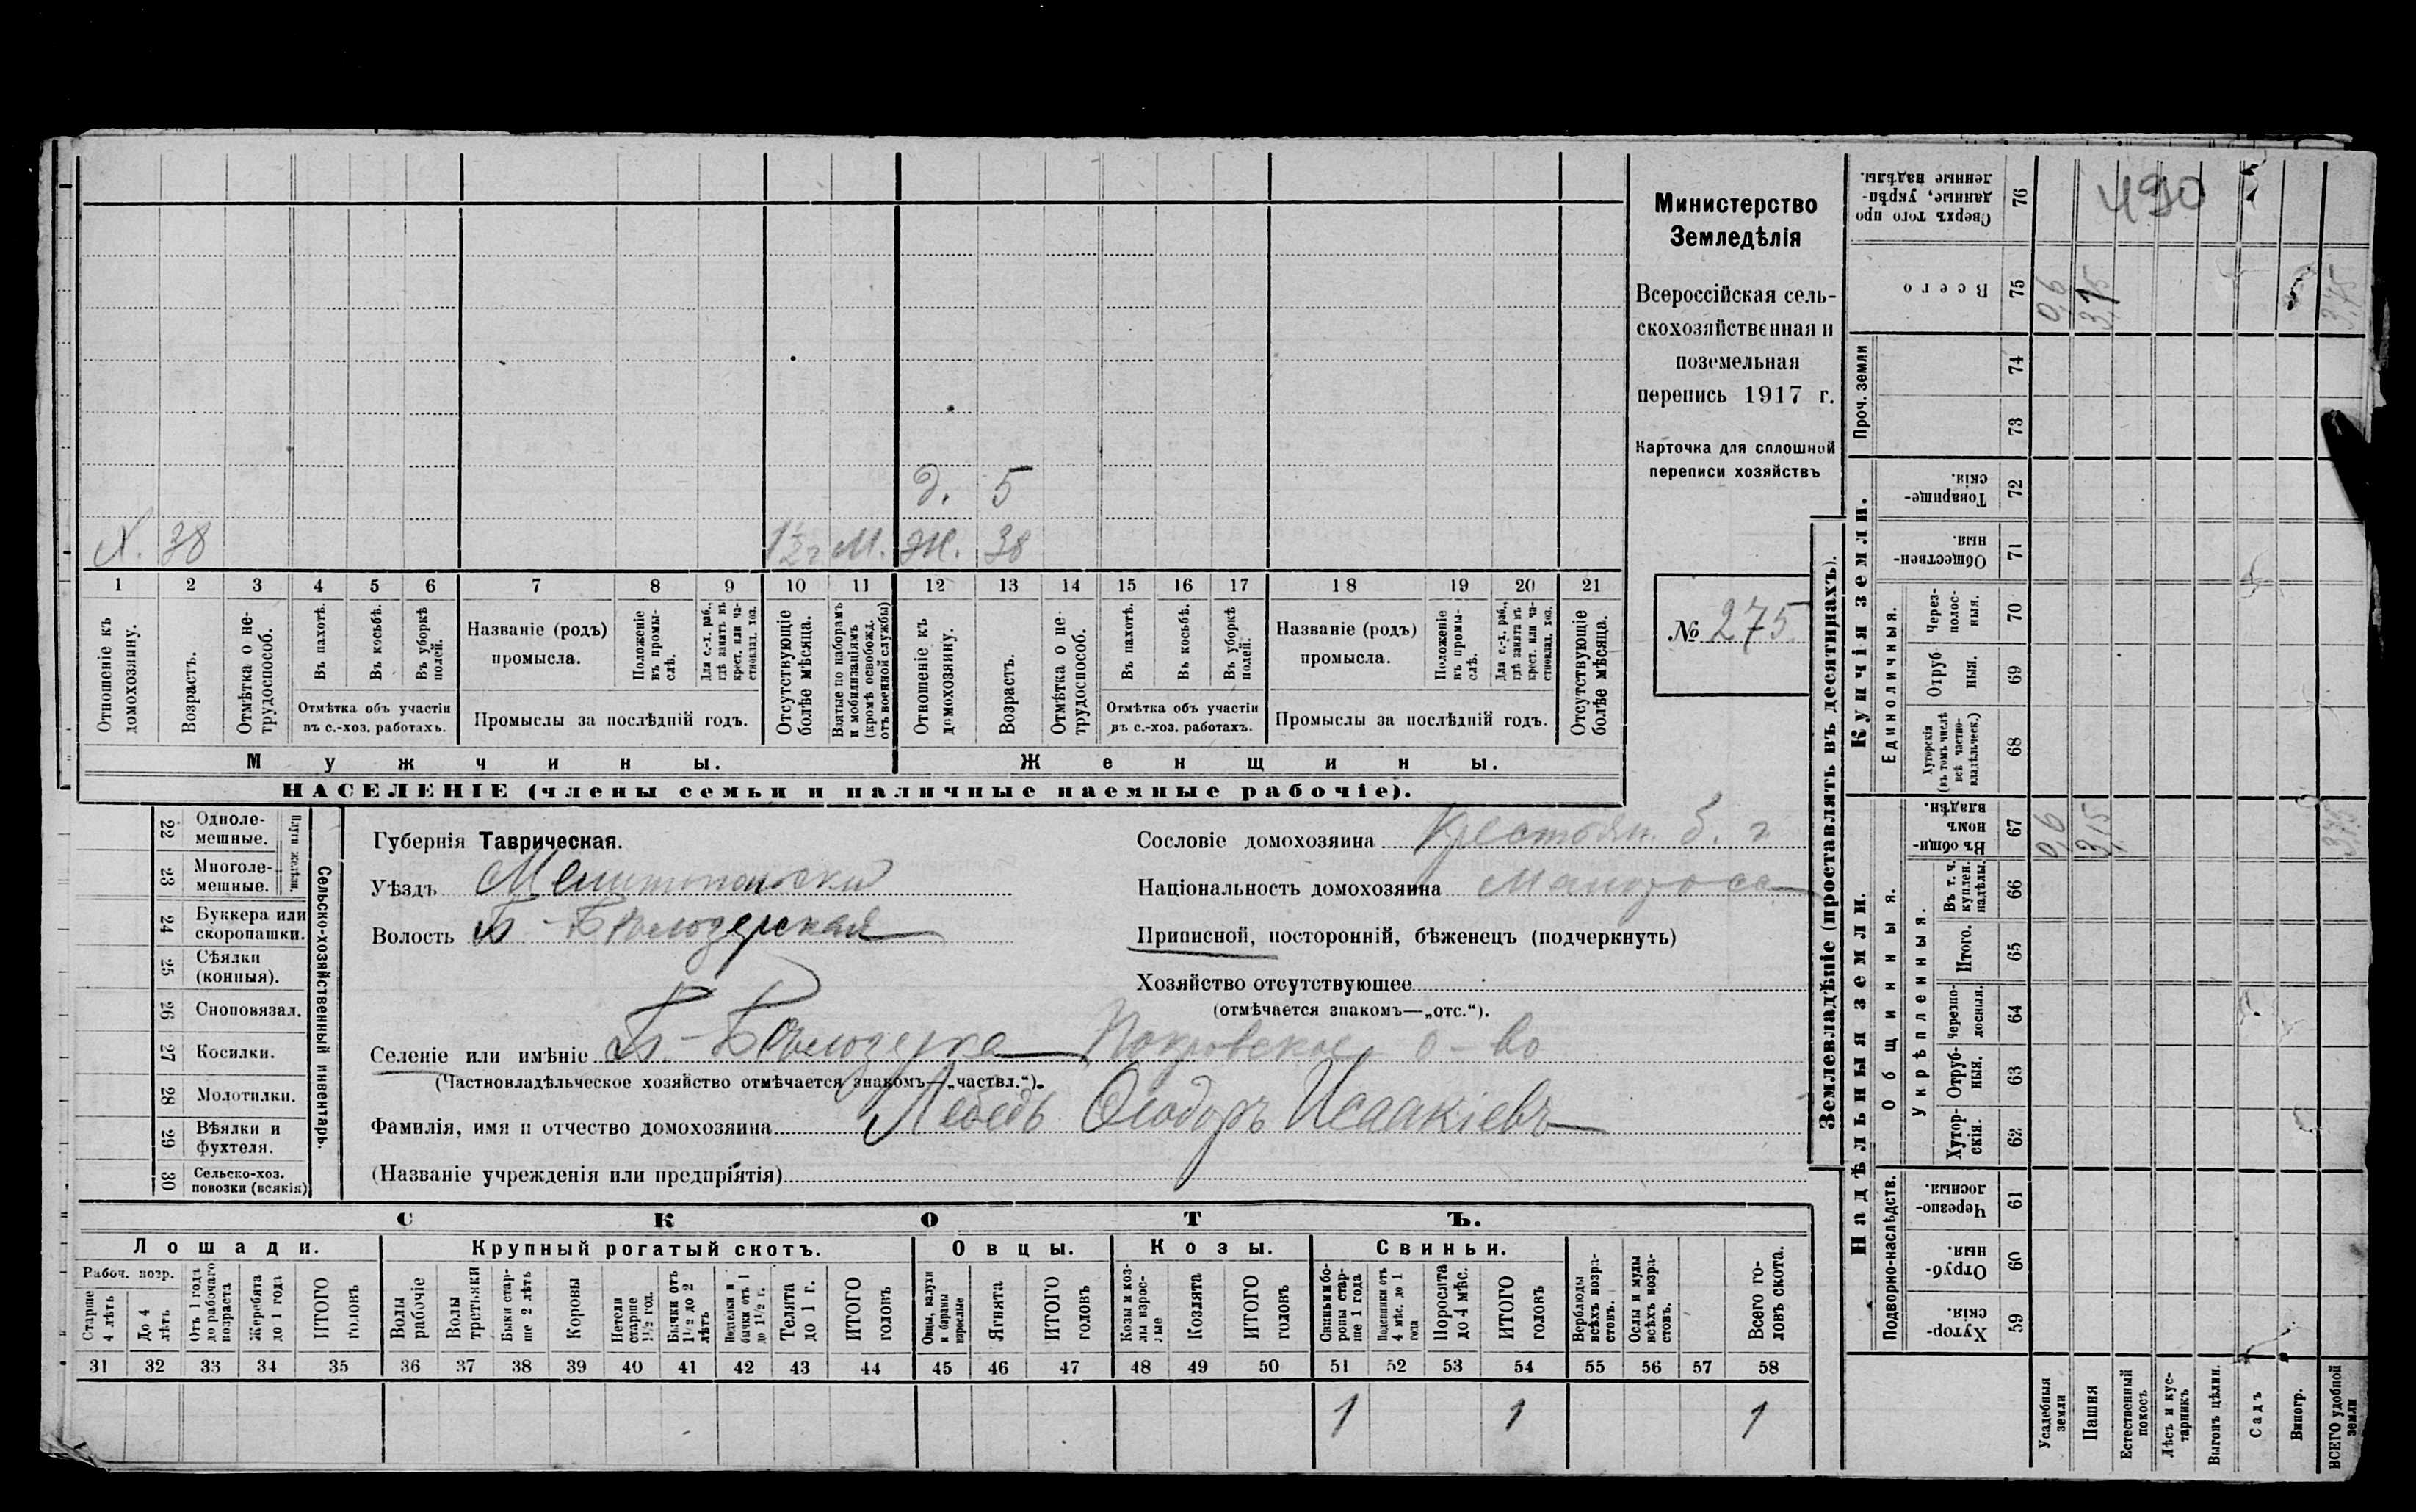 Министерство
Земледѣлія
Всероссійская сель-
скохозяйственная и
поземельная
перепись 1917 г.
Карточка для сплошной
переписи хозяйствъ
№ 275
д. 5
Х. 38 1½ г М. Ж. 38
1 2 3 4 5 6 7 8 9 10 11 12 13 14 15 16 17 18 19 20 21
Отношеніе къ домохозяину.
Возрастъ.
Отмѣтка о не-трудоспособ.
Въ пахотѣ.
Въ косьбѣ.
Въ уборкѣ полей.
Отмѣтка объ участіи
въ с.-хоз. работахъ.
Названіе (родъ)
промысла.
Положеніе въ промы-слѣ.
Для с.-х. раб., гдѣ занятъ въ крест. или ча-стновлад. хоз.
Промыслы за послѣдній годъ.
Отсутствующіе болѣе мѣсяца.
Взятые по наборамъ и мобилизаціямъ (кромѣ освобожд. отъ военной службы)
Отношеніе къ домохозяину.
Возрастъ.
Отмѣтка о не-трудоспособ.
Въ пахотѣ.
Въ косьбѣ.
Въ уборкѣ полей.
Отмѣтка объ участіи
въ с.-хоз. работахъ.
Названіе (родъ)
промысла.
Положеніе въ промы-слѣ.
Для с.-х. раб., гдѣ занята въ крест. или ча-стновлад. хоз.
Промыслы за послѣдній годъ.
Отсутствующіе болѣе мѣсяца.
Мужчины. Женщины.
НАСЕЛЕНІЕ (члены семьи и наличные наемные рабочіе).
Сельско-хозяйственный инвентарь.
Плуги желѣзн.
22 Одноле-мешные.
23 Многоле-мешные.
24 Буккера или скоропашки.
25 Сѣялки (конныя).
26 Сноповязал.
27 Косилки.
28 Молотилки.
29 Вѣялки и фухтеля.
30 Сельско-хоз. повозки (всякія)
Губернія Таврическая.
Уѣздъ Мелитопольскій
Волость Б-Бѣлозерская
Селеніе или имѣніе Б-Бѣлозерка Покровское о-во
(Частновладѣльческое хозяйство отмѣчается знакомъ—„частвл.“).
Фамилія, имя и отчество домохозяина Лебедь Ѳеодоръ Исаакіевъ
(Названіе учрежденія или предпріятія)
Сословіе домохозяина Крестьян. б. г
Національность домохозяина Малоросс
Приписной, посторонній, бѣженецъ (подчеркнуть)
Хозяйство отсутствующее
(отмѣчается знакомъ—„отс.“).
СКОТЪ.
Лошади. Крупный рогатый скотъ. Овцы. Козы. Свиньи.
Рабоч. возр.
Старше 4 лѣтъ
До 4 лѣтъ
Отъ 1 года до рабочаго возраста
Жеребята до 1 года
ИТОГО головъ
Волы рабочіе
Волы третьяки
Быки стар-ше 2 лѣтъ
Коровы
Нетели старше 1½ год.
Бычки отъ 1½ до 2 лѣтъ
Подтелки и бычки отъ 1 до 1½ г.
Телята до 1 г.
ИТОГО головъ
Овцы, валухи и бараны взрослые
Ягнята
ИТОГО головъ
Козы и коз-лы взрос-лые
Козлята
ИТОГО головъ
Свиньи и бо-ровы стар-ше 1 года
Подсвинки отъ 4 мѣс. до 1 года
Поросята до 4 мѣс.
ИТОГО головъ
Верблюды всѣхъ возра-стовъ.
Ослы и мулы всѣхъ возра-стовъ.
Всего го-ловъ скота.
31 32 33 34 35 36 37 38 39 40 41 42 43 44 45 46 47 48 49 50 51 52 53 54 55 56 57 58
1 1 1
Землевладѣніе (проставлять въ десятинахъ).
Купчія земли.
Надѣльныя земли.
490
76 Сверхъ того про-данные, укрѣп-ленные надѣлы.
75 Всего 0,6 3,15 3,75
Проч. земли
74
73
72 Товарище-скія.
71 Обществен-ныя.
Единоличныя.
70 Через-полос-ныя.
69 Отруб-ныя.
68 Хуторскія (въ томъ числѣ всѣ частно-владѣльческ.)
67 Въ общин-номъ владѣн. 0,6 3,15 3,75
Общинныя.
Укрѣпленныя.
66 Въ т. ч. куплен. надѣлы.
65 Итого.
64 Черезпо-лосныя.
63 Отруб-ныя.
62 Хутор-скія.
Подворно-наслѣдств.
61 Черезпо-лосныя.
60 Отруб-ныя.
59 Хутор-скія.
Усадебныя земли
Пашня
Естественный покосъ
Лѣсъ и кус-тарникъ
Выгонъ цѣлин.
Садъ
Виногр.
ВСЕГО удобной земли